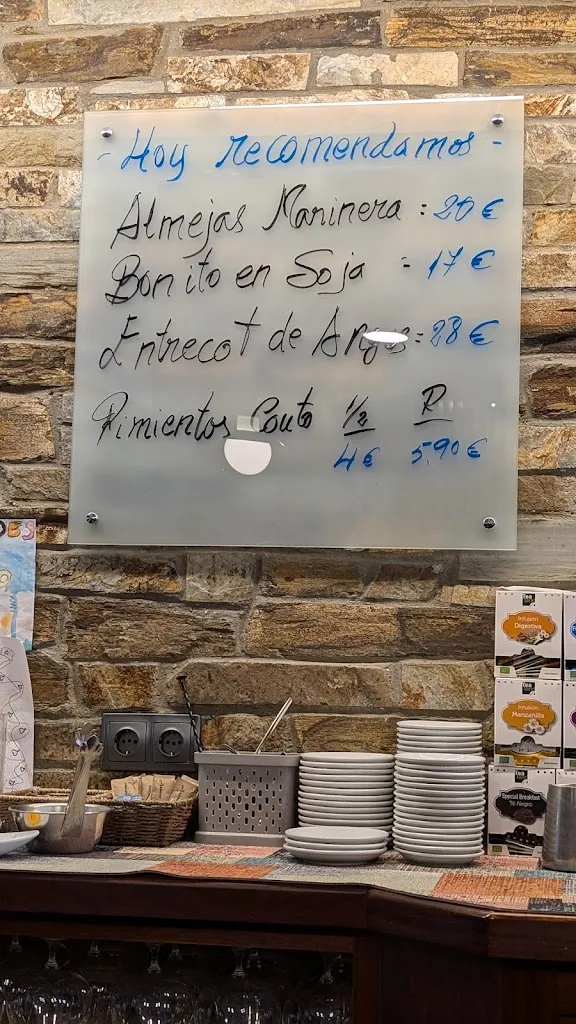 - Hoy recomendamos -
Almejas Marinera : 20 €
Bonito en Soja - 17 €
Entrecot de Angus : 28 €
Pimientos Couto 1/2 R
4 € 5,90 €
Infusión
Digestiva
Infusión
Manzanilla
Special Breakfast
Té Negro